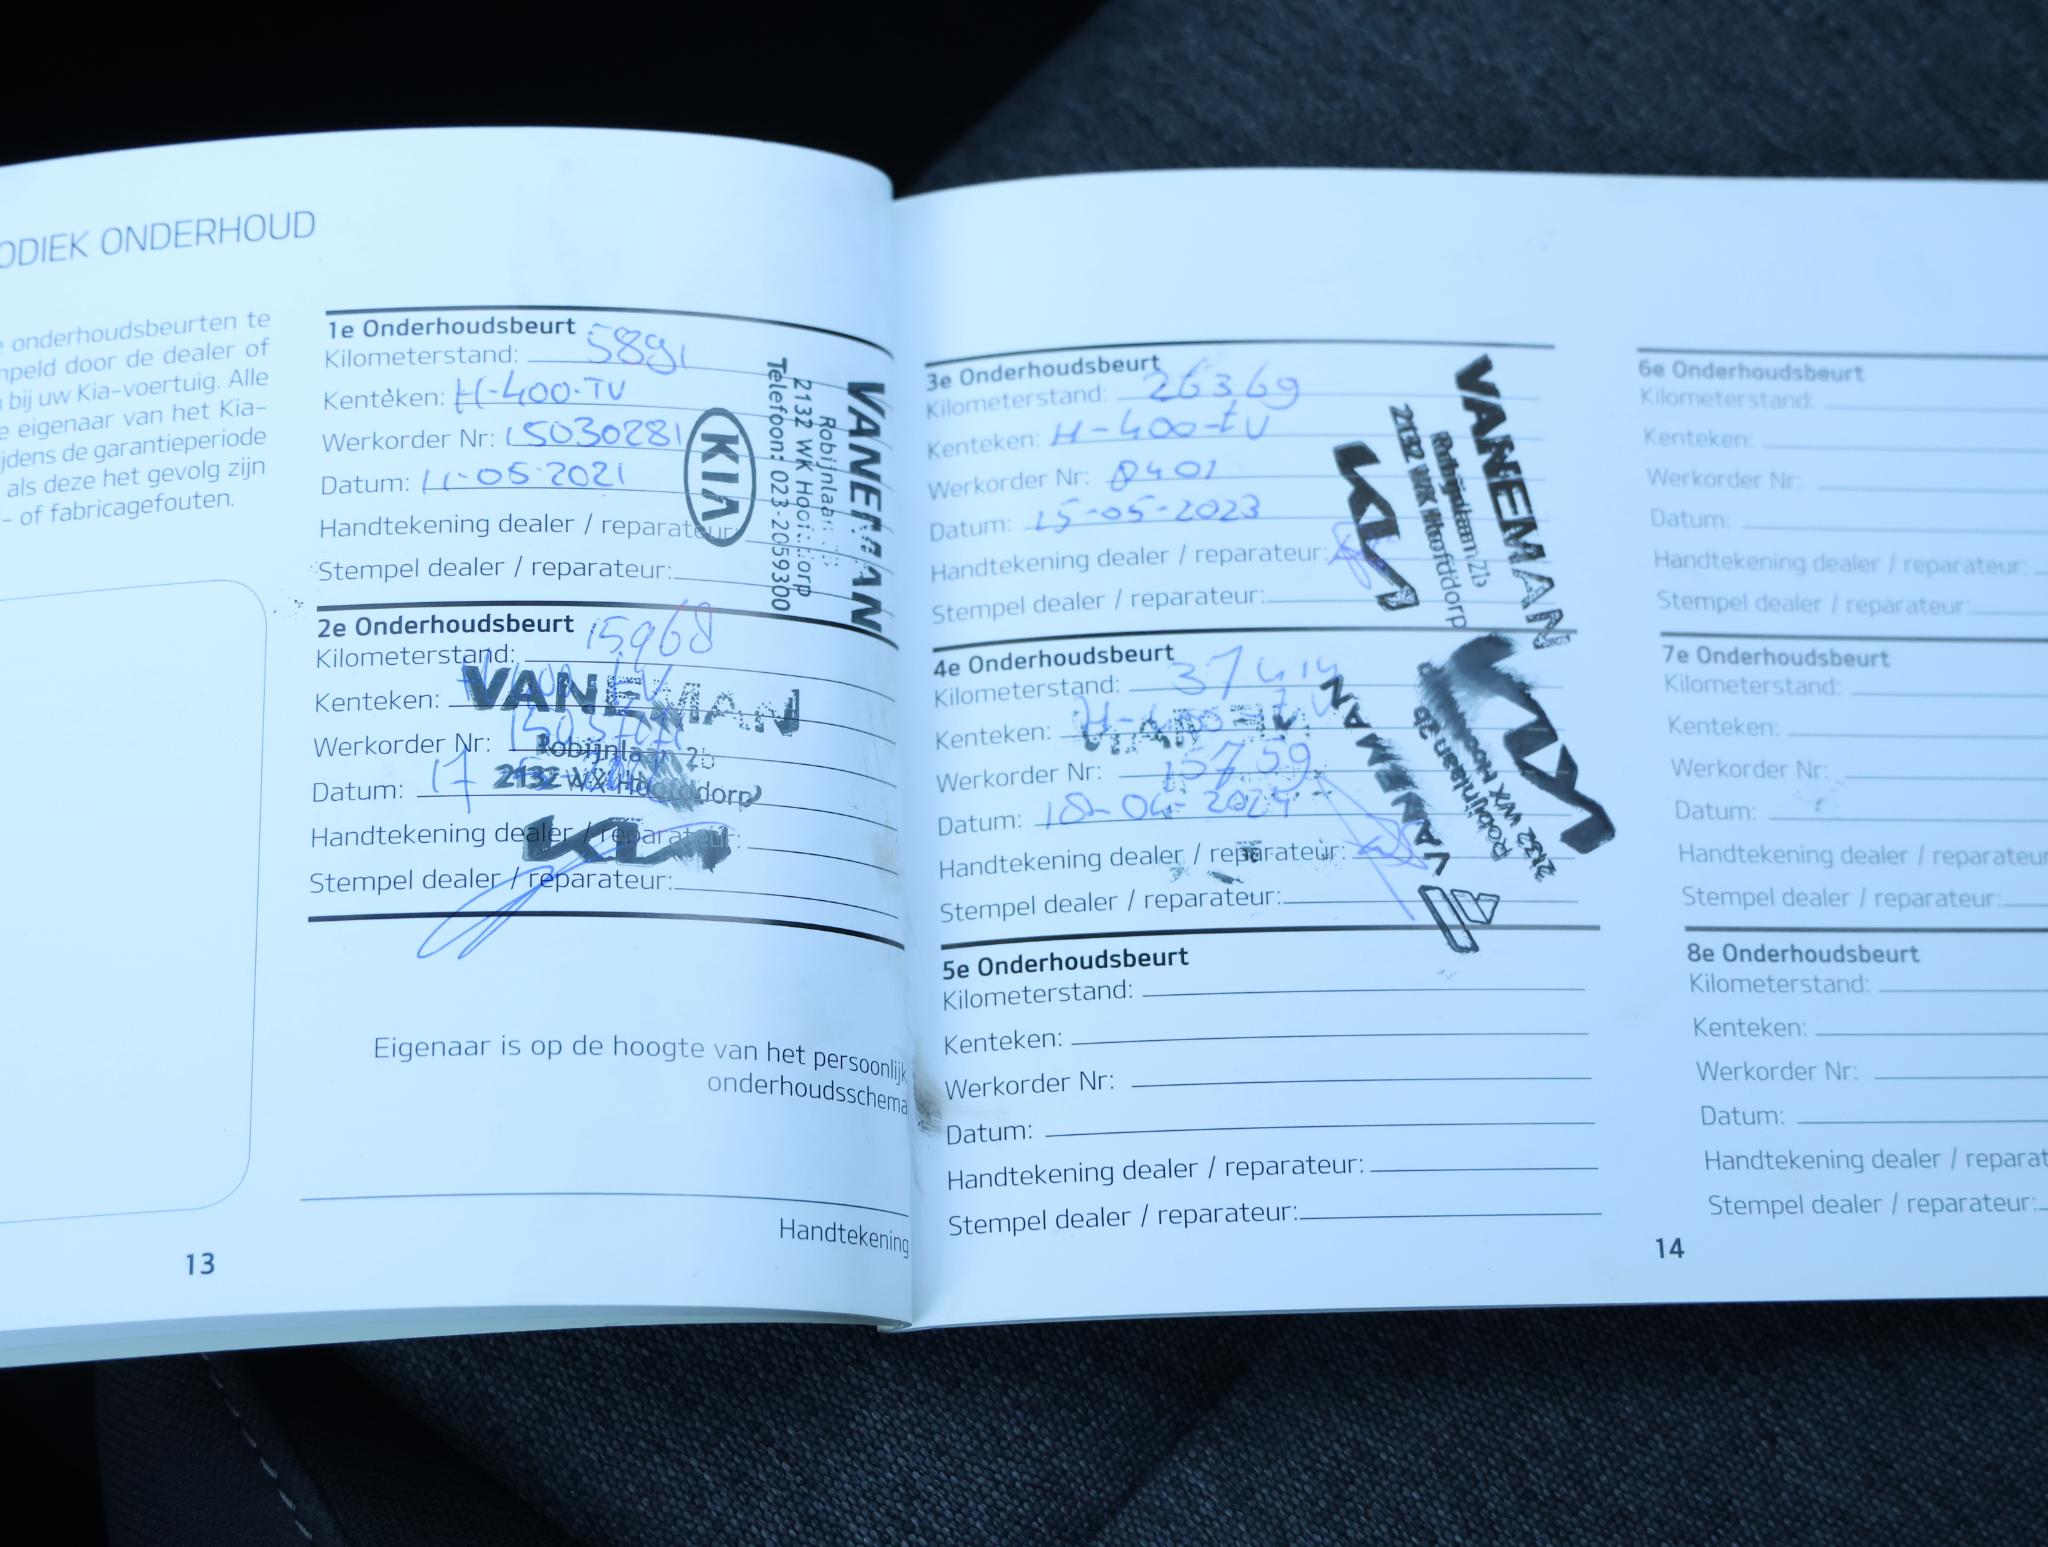 ODIEK ONDERHOUD
onderhoudsbeurten te
mpeld door de dealer of
bij uw Kia-voertuig. Alle
e eigenaar van het Kia-
ijdens de garantieperiode
als deze het gevolg zijn
- of fabricagefouten.
1e Onderhoudsbeurt
Kilometerstand: 5891
Kenteken: H-400-TV
Werkorder Nr: 15030281
Datum: 11-05-2021
Handtekening dealer / reparateur:
Stempel dealer / reparateur:
VANEMAN
Robijnlaan
2132 WK Hoofddorp
Telefoon: 023-2059300
KIA
2e Onderhoudsbeurt
Kilometerstand: 15968
Kenteken:
Werkorder Nr:
Datum: 17
Handtekening dealer / reparateur:
Stempel dealer / reparateur:
VANEMAN
Robijnlaan 2b
2132 WX Hoofddorp
KIA
Eigenaar is op de hoogte van het persoonlijk
onderhoudsschema
Handtekening
13
3e Onderhoudsbeurt
Kilometerstand: 26369
Kenteken: H-400-tv
Werkorder Nr: 0401
Datum: 15-05-2023
Handtekening dealer / reparateur:
Stempel dealer / reparateur:
VANEMAN
Robijnlaan 2b
2132 WK Hoofddorp
KIA
4e Onderhoudsbeurt
Kilometerstand: 37414
Kenteken: H-400-tv
Werkorder Nr: 15759
Datum: 18-04-2024
Handtekening dealer / reparateur:
Stempel dealer / reparateur:
VANEMAN
KIA
VANEMAN
Robijnlaan 2b
2132 WX
5e Onderhoudsbeurt
Kilometerstand:
Kenteken:
Werkorder Nr:
Datum:
Handtekening dealer / reparateur:
Stempel dealer / reparateur:
6e Onderhoudsbeurt
Kilometerstand:
Kenteken:
Werkorder Nr:
Datum:
Handtekening dealer / reparateur:
Stempel dealer / reparateur:
7e Onderhoudsbeurt
Kilometerstand:
Kenteken:
Werkorder Nr:
Datum:
Handtekening dealer / reparateur
Stempel dealer / reparateur:
8e Onderhoudsbeurt
Kilometerstand:
Kenteken:
Werkorder Nr:
Datum:
Handtekening dealer / reparat
Stempel dealer / reparateur:
14